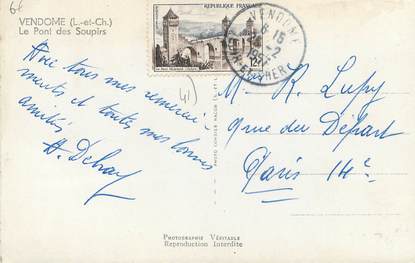 6f
VENDOME (L.-et-Ch.)
Le Pont des Soupirs
REPUBLIQUE FRANÇAISE
VENDOME
8 H 15
LOIR-ET-CHER
12F
41)
tous mes remercie-
ments et toutes mes bonnes
amitiés
M. R. Lupy
9 rue du Départ
Paris 14e
PHOTOGRAPHIE VÉRITABLE
Reproduction Interdite